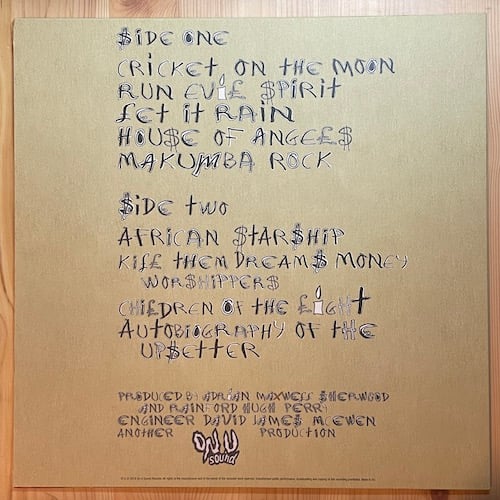 $IDE ONE
CRICKET ON THE MOON
RUN EVIL $PIRIT
£ET IT RAIN
HOU$E OF ANGE£$
MAKUMBA ROCK
$IDE TWO
AFRICAN $TAR$HIP
KI££ THEM DREAM$ MONEY
WOR$HIPPER$
CHI£DREN OF THE £IGHT
AUTOBIOGRAPHY OF THE
UP$ETTER
PRODUCED BY ADRIAN MAXWE££ $HERWOOD
AND RAINFORD HUGH PERRY
ENGINEER DAVID JAME$ MCEWEN
ANOTHER ON.U SOUND PRODUCTION